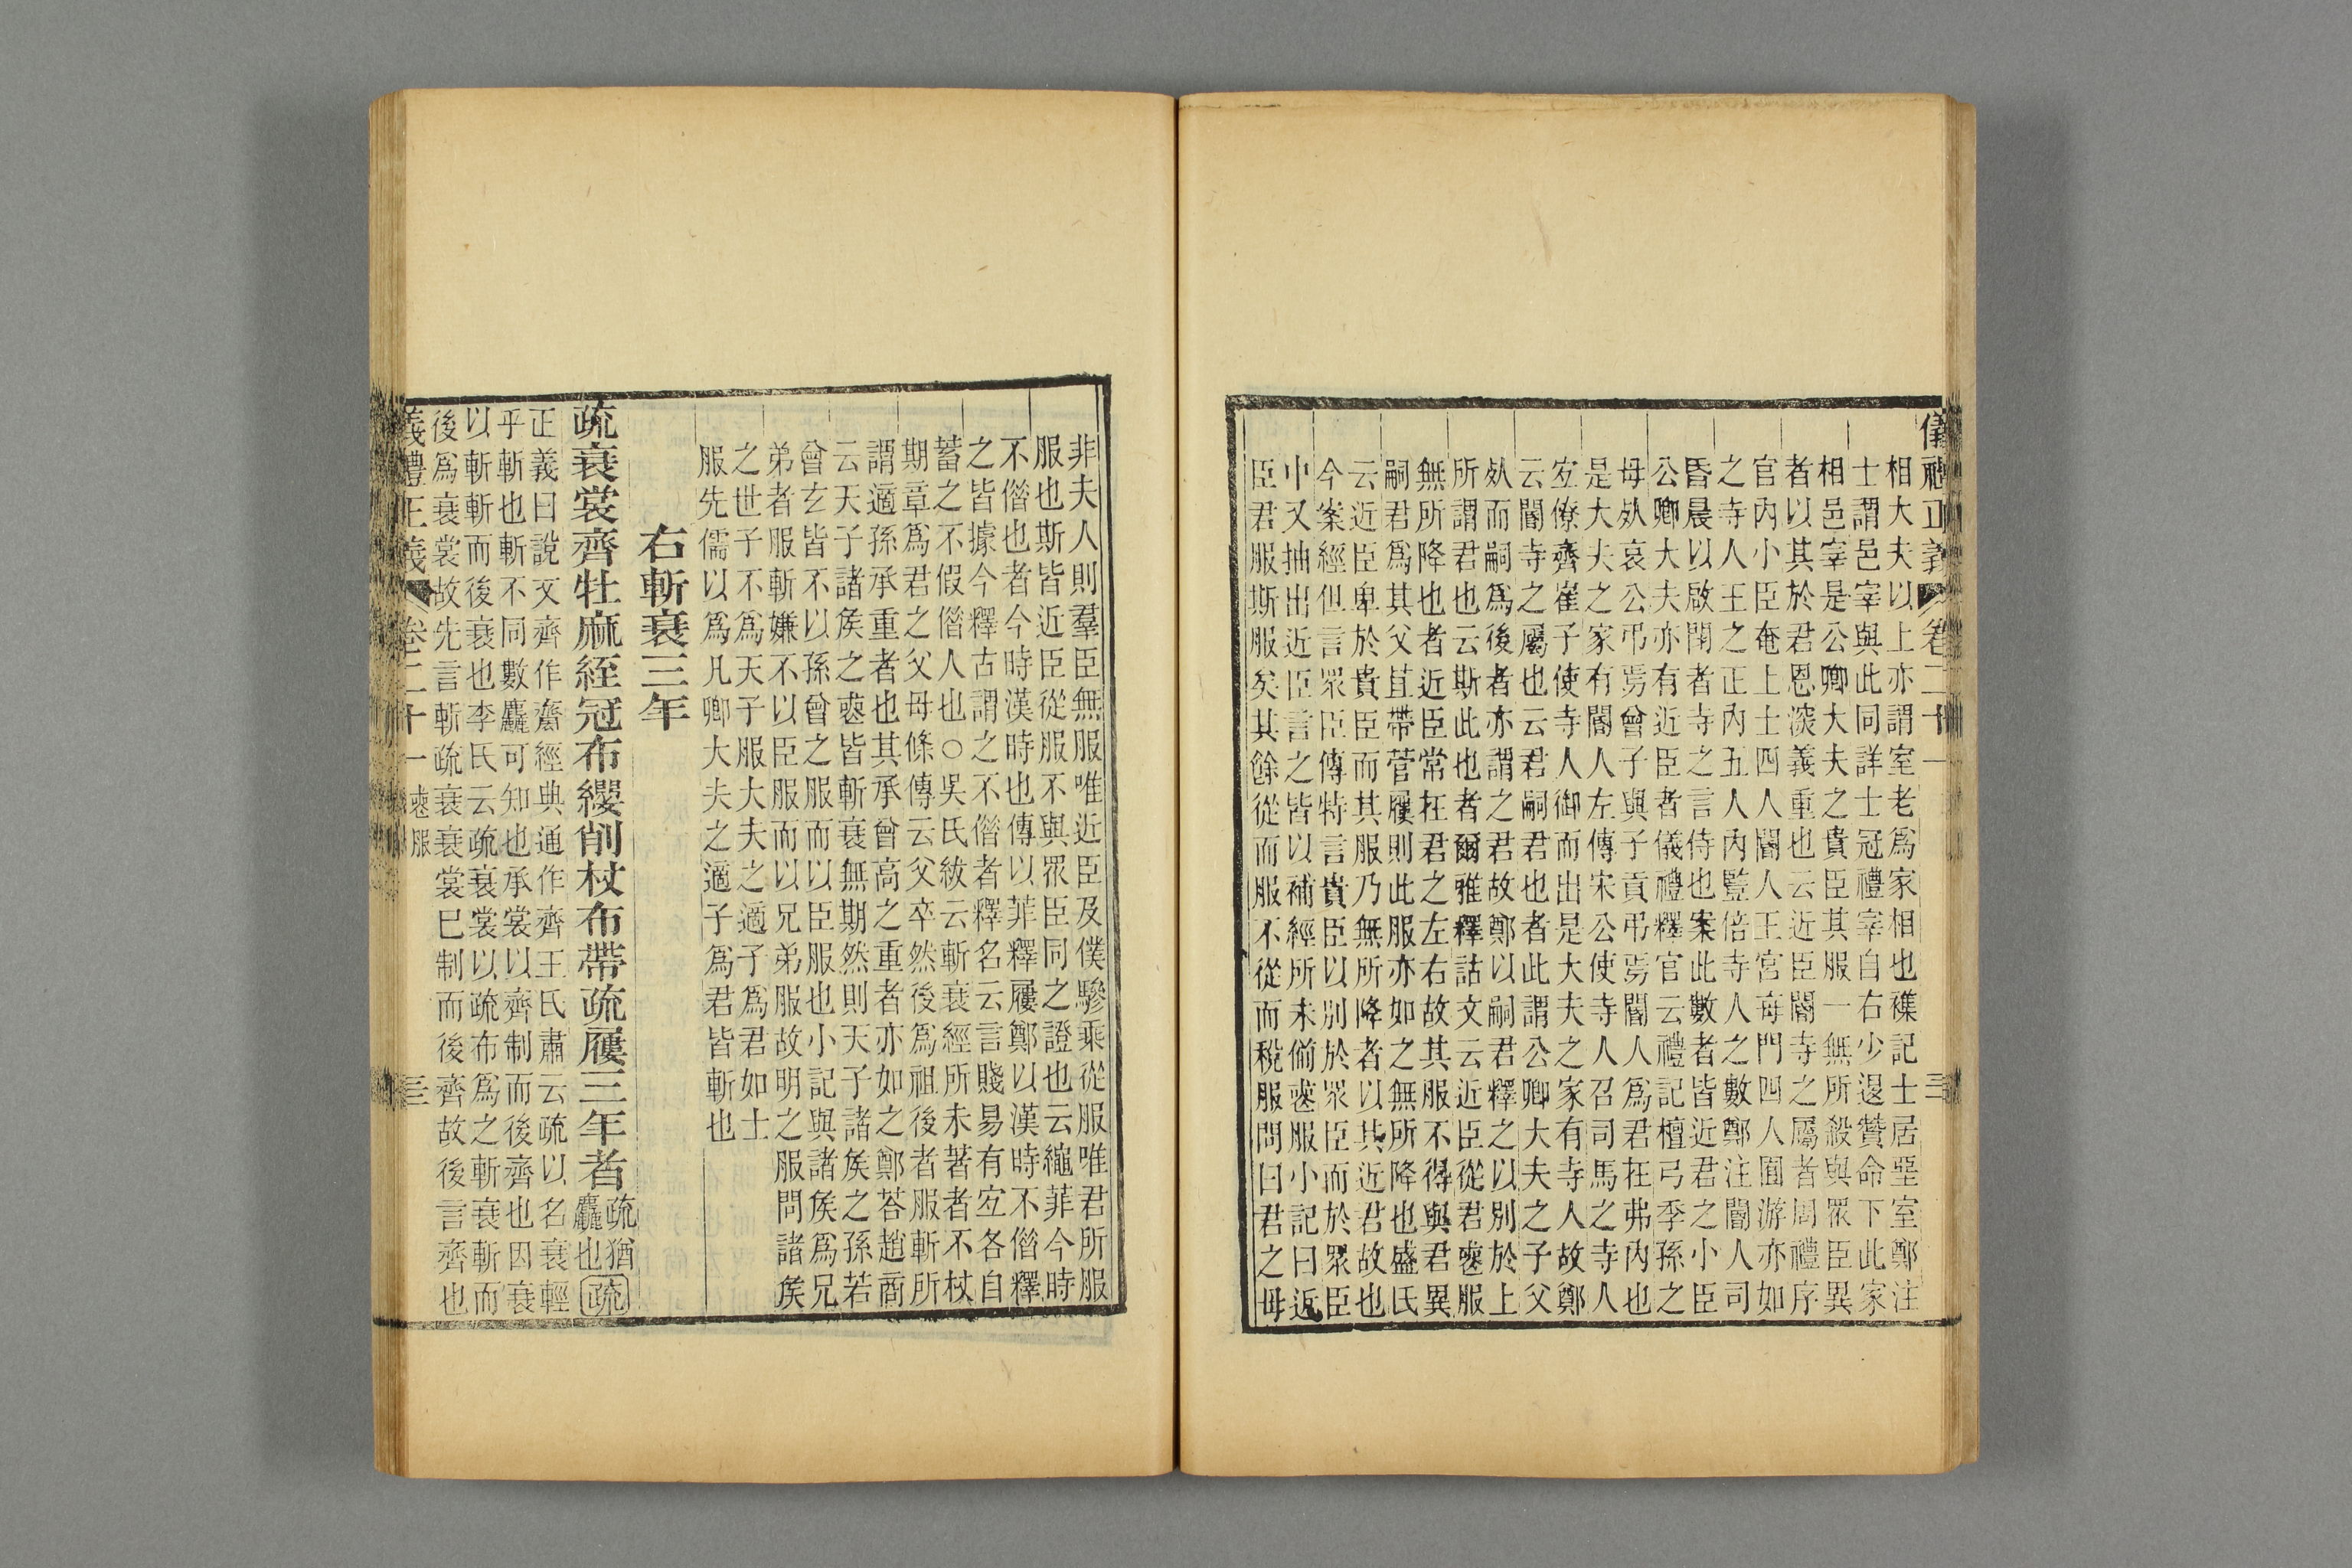 儀禮正義 卷二十一 三
相大夫以上亦謂室老爲家相也襍記士居堊室鄭注
士謂邑宰與此同詳士冠禮宰自右少退贊命下此家
相邑宰是公卿大夫之貴臣其服一無所殺與眾臣異
者以其於君恩深義重也云近臣閽寺之屬者周禮序
官內小臣奄上士四人閽人王宮每門四人囿游亦如
之寺人王之正內五人內監倍寺人之數鄭注閽人司
昏晨以啟閉者寺之言侍也案此數者皆近君之小臣
公卿大夫亦有近臣者儀禮釋官云禮記檀弓季孫之
母死哀公弔焉曾子與子貢弔焉閽人爲君在弗內也
是大夫之家有閽人左傳宋公使寺人召司馬之寺人
宜僚齊崔子使寺人御而出是大夫之家有寺人故鄭
云閽寺之屬也云君嗣君也者此謂公卿大夫之子父
死而嗣爲後者亦謂之君故鄭以嗣君釋之以別於上
所謂君也云斯此也者爾雅釋詁文云近臣從君喪服
無所降也者近臣常在君之左右故其服不得與君異
嗣君爲其父苴帶菅屨則此服亦如之無所降也盛氏
云近臣卑於貴臣而其服乃無所降者以其近君故也
今案經但言眾臣傳特言貴臣以別於眾臣而於眾臣
中又抽出近臣言之皆以補經所未備喪服小記曰近
臣君服斯服矣其餘從而服不從而稅服問曰君之母
非夫人則羣臣無服唯近臣及僕驂乘從服唯君所服
服也斯皆近臣從服不與眾臣同之證也云繩菲今時
不借也者今時漢時也傳以菲釋屨鄭以漢時不借釋
之皆據今釋古謂之不借者釋名云言賤易有宜各自
蓄之不假借人也○吳氏紱云斬衰經所未著者不杖
期章爲君之父母條傳云父卒然後爲祖後者服斬所
謂適孫承重者也其承曾高之重者亦如之鄭荅趙商
云天子諸矦之喪皆斬衰無期然則天子諸矦之孫若
曾玄皆不以孫曾之服而以臣服也小記與諸矦爲兄
弟者服斬嫌不以臣服而以兄弟服故明之服問諸矦
之世子不爲天子服大夫之適子爲君如士
服先儒以爲凡卿大夫之適子爲君皆斬也
右斬衰三年
疏衰裳齊牡麻絰冠布纓削杖布帶疏屨三年者
疏猶
麤也疏
正義曰說文齊作齌經典通作齊王氏肅云疏以名衰輕
乎斬也斬不同數麤可知也承裳以齊制而後齊也因衰
以斬斬而後衰也李氏云疏衰裳以疏布爲之斬衰斬而
後爲衰裳故先言斬疏衰衰裳已制而後齊故後言齊也
義禮正義 卷二十一 喪服 三